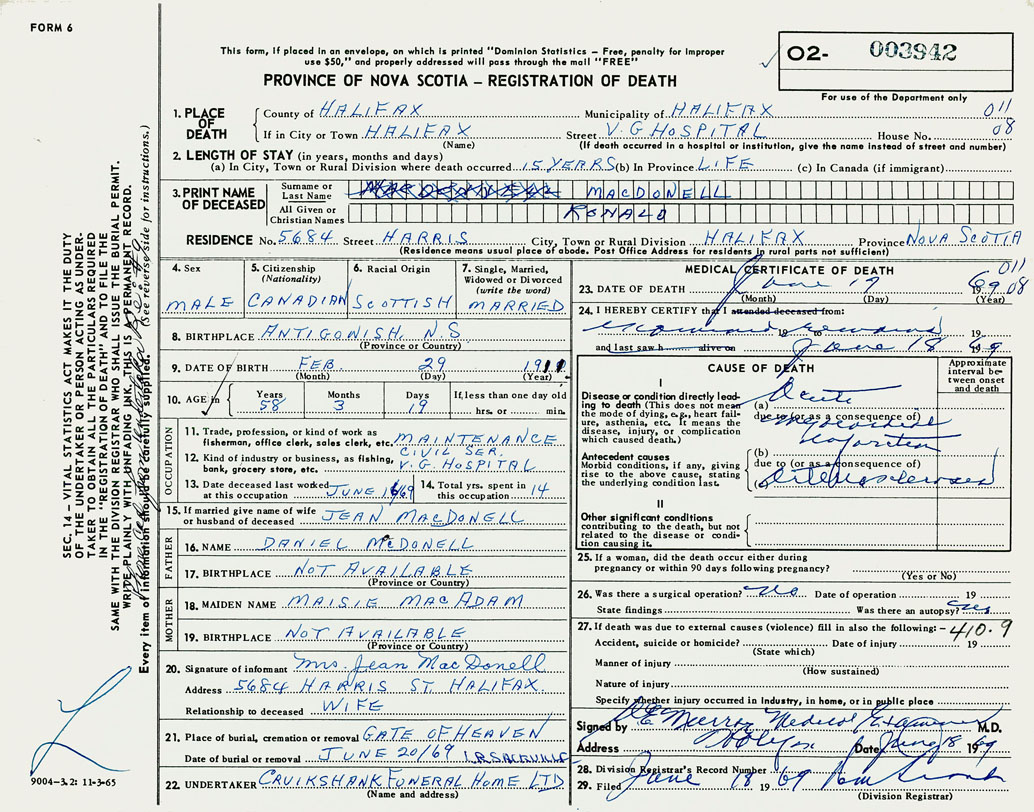 FORM 6
This form, if placed in an envelope, on which is printed "Dominion Statistics – Free, penalty for improper
use $50," and properly addressed will pass through the mail "FREE"
02- 003942
For use of the Department only
PROVINCE OF NOVA SCOTIA – REGISTRATION OF DEATH
1. PLACE OF DEATH
County of HALIFAX Municipality of HALIFAX 011
If in City or Town HALIFAX Street V. G HOSPITAL House No. 08
(Name) (If death occurred in a hospital or institution, give the name instead of street and number)
2. LENGTH OF STAY (in years, months and days)
(a) In City, Town or Rural Division where death occurred 15 YEARS (b) In Province LIFE (c) In Canada (if immigrant)
3. PRINT NAME OF DECEASED
Surname or Last Name MACDONELL
All Given or Christian Names RONALD
RESIDENCE No. 5684 Street HARRIS City, Town or Rural Division HALIFAX Province NOVA SCOTIA
(Residence means usual place of abode. Post Office Address for residents in rural parts not sufficient)
4. Sex
MALE
5. Citizenship
(Nationality)
CANADIAN
6. Racial Origin
SCOTTISH
7. Single, Married,
Widowed or Divorced
(write the word)
MARRIED
8. BIRTHPLACE ANTIGONISH, N.S
(Province or Country)
9. DATE OF BIRTH FEB. 29 1911
(Month) (Day) (Year)
10. AGE in Years Months Days If, less than one day old
58 3 19 hrs. or min.
OCCUPATION
11. Trade, profession, or kind of work as
fisherman, office clerk, sales clerk, etc. MAINTENANCE
12. Kind of industry or business, as fishing, CIVIL SER.
bank, grocery store, etc. V. G. HOSPITAL
13. Date deceased last worked
at this occupation JUNE 16/69
14. Total yrs. spent in
this occupation 14
15. If married give name of wife
or husband of deceased JEAN MACDONELL
FATHER
16. NAME DANIEL McDONELL
17. BIRTHPLACE NOT AVAILABLE
(Province or Country)
MOTHER
18. MAIDEN NAME MAISIE MAC ADAM
19. BIRTHPLACE NOT AVAILABLE
(Province or Country)
20. Signature of informant Mrs. Jean MacDonell
Address 5684 HARRIS ST. HALIFAX.
Relationship to deceased WIFE
21. Place of burial, cremation or removal GATE OF HEAVEN
Date of burial or removal JUNE 20/69 LR. SACKVILLE
22. UNDERTAKER CRUIKSHANK FUNERAL HOME LTD
(Name and address)
MEDICAL CERTIFICATE OF DEATH 011
23. DATE OF DEATH June 17 1969 08
(Month) (Day) (Year)
24. I HEREBY CERTIFY that I attended deceased from:
19 19
and last saw h alive on June 18 1969
CAUSE OF DEATH
Approximate
interval be-
tween onset
and death
I
Disease or condition directly lead-
ing to death (This does not mean
the mode of dying, e.g., heart fail-
ure, asthenia, etc. It means the
disease, injury, or complication
which caused death.)
(a) Acute
due to (or as a consequence of)
myocardial
infarction
Antecedent causes
Morbid conditions, if any, giving
rise to the above cause, stating
the underlying condition last.
(b)
due to (or as a consequence of)
(c) Arteriosclerosis
II
Other significant conditions
contributing to the death, but not
related to the disease or condi-
tion causing it.
25. If a woman, did the death occur either during
pregnancy or within 90 days following pregnancy?
(Yes or No)
26. Was there a surgical operation? no Date of operation 19
State findings Was there an autopsy?
27. If death was due to external causes (violence) fill in also the following: - 410.9
Accident, suicide or homicide? Date of injury 19
(State which)
Manner of injury
(How sustained)
Nature of injury
Specify whether injury occurred in industry, in home, or in public place
Signed by Murray Medical Examiner M.D.
Address Halifax Date June 18 1969
28. Division Registrar's Record Number
29. Filed June 18 1969
(Division Registrar)
SEC. 14 – VITAL STATISTICS ACT MAKES IT THE DUTY
OF THE UNDERTAKER OR PERSON ACTING AS UNDER-
TAKER TO OBTAIN ALL THE PARTICULARS REQUIRED
IN THE "REGISTRATION OF DEATH" AND TO FILE THE
SAME WITH THE DIVISION REGISTRAR WHO SHALL ISSUE THE BURIAL PERMIT.
WRITE PLAINLY WITH UNFADING INK. THIS IS A PERMANENT RECORD.
Every item of information should be carefully supplied. (See reverse side for instructions.)
9004–3.2: 11-3-65